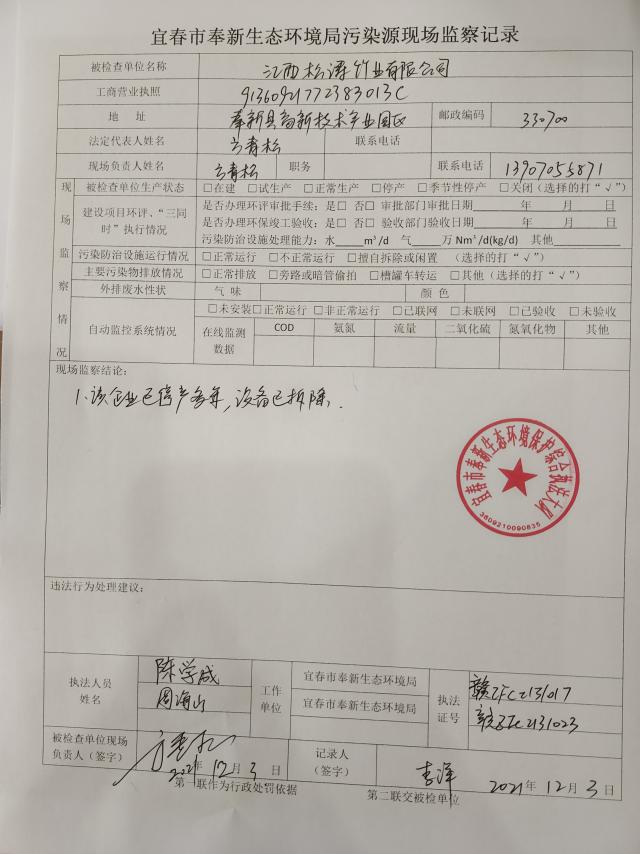 宜春市奉新生态环境局污染源现场监察记录
被检查单位名称 江西松涛竹业有限公司
工商营业执照 91360921772383013C
地 址 奉新县高新技术产业园区 邮政编码 330700
法定代表人姓名 方青松 联系电话
现场负责人姓名 方青松 职务 联系电话 13907055871
现场监察情况
被检查单位生产状态 □在建 □试生产 □正常生产 □停产 □季节性停产 □关闭(选择的打“√”)
建设项目环评、“三同时”执行情况
是否办理环评审批手续：是□ 否□ 审批部门审批日期 年 月 日
是否办理环保竣工验收：是□ 否□ 验收部门验收日期 年 月 日
污染防治设施处理能力：水 m³/d 气 万Nm³/d(kg/d) 其他
污染防治设施运行情况 □正常运行 □不正常运行 □擅自拆除或闲置 （选择的打“√”）
主要污染物排放情况 □正常排放 □旁路或暗管偷拍 □槽罐车转运 □其他（选择的打“√”）
外排废水性状 气 味 颜 色
自动监控系统情况 □未安装□正常运行 □非正常运行 □已联网 □未联网 □已验收 □未验收
在线监测数据 COD 氨氮 流量 二氧化硫 氮氧化物 其他
现场监察结论：
1.该企业已停产多年，设备已拆除.
宜春市奉新生态环境保护综合执法大队
3609210090835
违法行为处理建议：
执法人员姓名 陈学成 工作单位 宜春市奉新生态环境局 执法证号 赣ZFC2131017
周海山 宜春市奉新生态环境局 赣ZFC2131023
被检查单位现场负责人（签字） 方青松 2021年12月3日 记录人（签字） 李洋 2021年12月3日
第一联作为行政处罚依据 第二联交被检单位